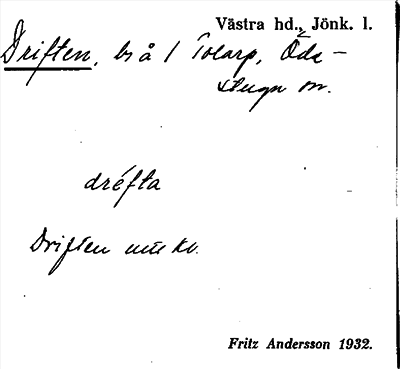 Västra hd., Jönk. l.
Driften, bs å 1 Tolarp, Öde-
stugu sn.
dréfta
Driften
Fritz Andersson 1932.